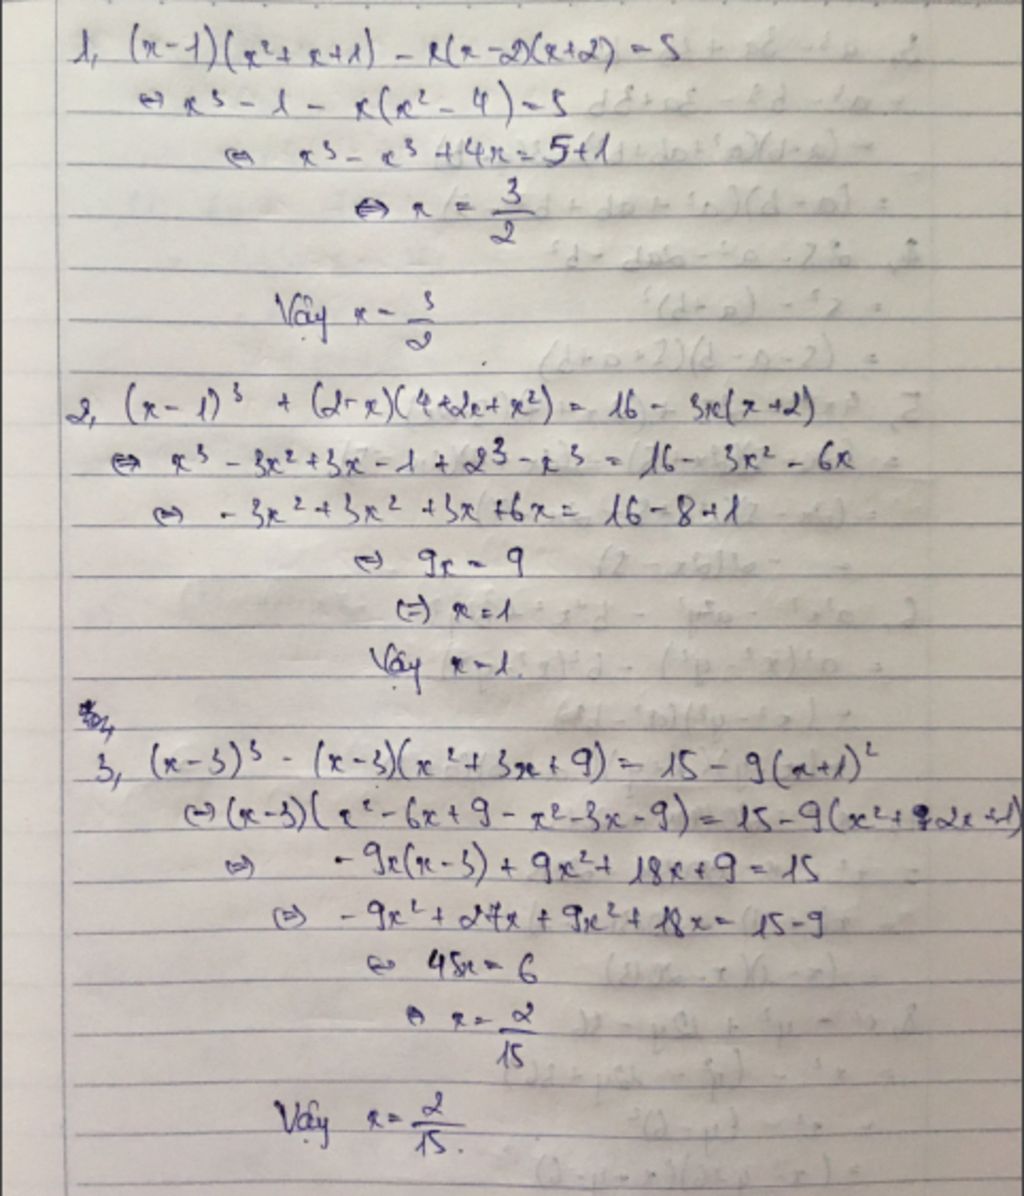 1, (x-1)(x²+x+1) - x(x-2)(x+2) = 5
⇔ x³ - 1 - x(x² - 4) = 5
⇔ x³ - x³ + 4x = 5+1
⇔ x = 3/2
Vậy x = 3/2
2, (x-1)³ + (2-x)(4+2x+x²) = 16 - 3x(x+2)
⇔ x³ - 3x² + 3x - 1 + 2³ - x³ = 16 - 3x² - 6x
⇔ -3x² + 3x² + 3x + 6x = 16 - 8 + 1
⇔ 9x = 9
⇔ x = 1
Vậy x = 1.
3, (x-3)³ - (x-3)(x²+3x+9) = 15 - 9(x+1)²
⇔ (x-3)(x² - 6x + 9 - x² - 3x - 9) = 15 - 9(x² + 2x + 1)
⇔ -9x(x-3) + 9x² + 18x + 9 = 15
⇔ -9x² + 27x + 9x² + 18x = 15-9
⇔ 45x = 6
⇔ x = 2/15
Vậy x = 2/15.